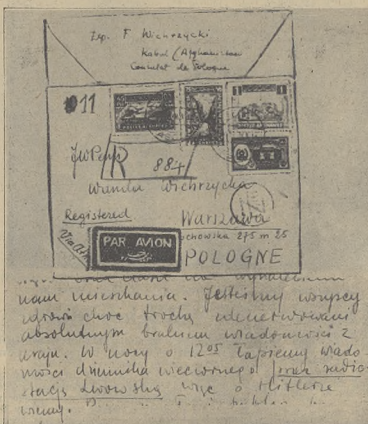 Exp. F. Wichrzycki
Kabul (Afghanistan
Consulat de Pologne
11
1
R 884
JWPani
Wanda Wichrzycka
Registered
Warszawa
ochowska 275 m 25
PAR AVION
POLOGNE
nam mieszkania. Jesteśmy wszyscy
zdrowi choć trochę zdenerwowani
absolutnym brakiem wiadomości z
kraju. W nocy o 12⁰⁵ łapiemy wiado
mości dziennika wieczornego przez radio
stację lwowską więc o Hitlerze
wiemy.